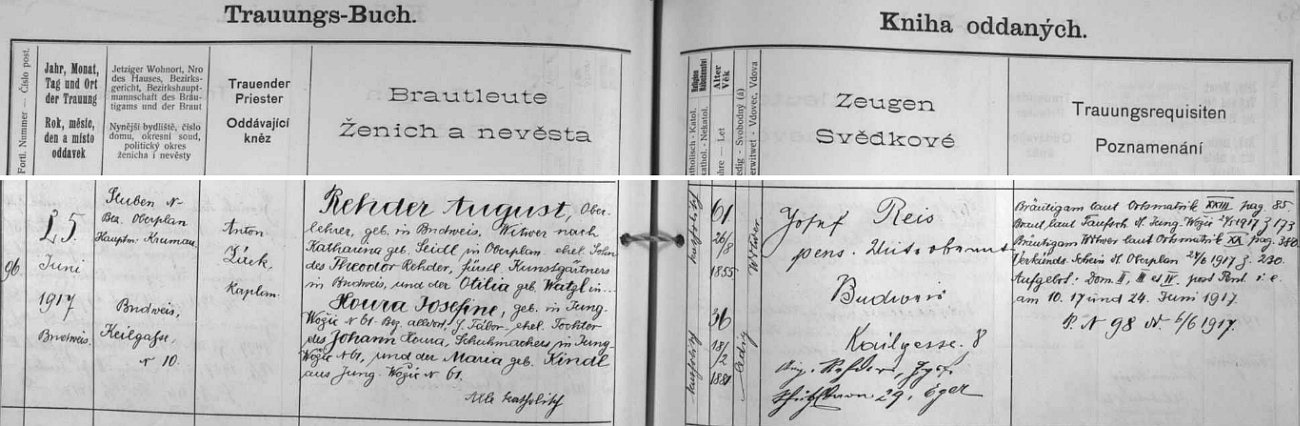 Trauungs-Buch.
Kniha oddaných.
Fortl. Nummer — Číslo post.
Jahr, Monat,
Tag und Ort
der Trauung
Rok, měsíc,
den a místo
oddavek
Jetziger Wohnort, Nro
des Hauses, Bezirks-
gericht, Bezirkshaupt-
mannschaft des Bräu-
tigams und der Braut
Nynější bydliště, číslo
domu, okresní soud,
politický okres
ženicha i nevěsty
Trauender
Priester
Oddávající
kněz
Brautleute
Ženich a nevěsta
Religion
Katholisch - Katol.
Alter
Věk
Jahre — Let
Ledig - Svobodný (á)
Verwitwet - Vdovec, Vdova
Zeugen
Svědkové
Trauungsrequisiten
Poznamenání
96.
25.
Juni
1917
Budweis.
Stuben N-
Bez. Oberplan
Hauptm. Krumau
Budweis,
Keilgasse,
N 10.
Anton
Kaplan.
Rehder August, Ober-
lehrer, geb. in Budweis, Witwer nach
Katharina geb. Seidl in Oberplan ehel. Sohn
des Theodor Rehder, fürstl. Kunstgärtners
in Budweis, und der Otilia geb. Watzl in...
Houra Josefine, geb. in Jung-
Wožic N 61. Bez. Tábor, ehel. Tochter
des Johann Houra, Schuhmachers in Jung-
Wožic N 61, und der Maria geb. Kindl
aus Jung-Wožic N 61.
Alle katholisch
katholisch
61
26/8
1855
Witwer
katholisch
36
18/2
1881
ledig
Josef Reis
pens.
Budweis
Keilgasse 8
29. Eger
Bräutigam laut Ortsmatrik XXIII pag. 85.
Braut laut Taufsch. d. Jung-Wožic 2/6 1917 z 173
Bräutigam Witwer laut Ortsmatrik XX pag. 380.
Verkünd. Schein d. Oberplan 24/6 1917 z. 230.
Aufgebot: Dom. II, III et IV. post Pent. i. e.
am 10. 17 und 24. Juni 1917.
P. N 98 6/6 1917.